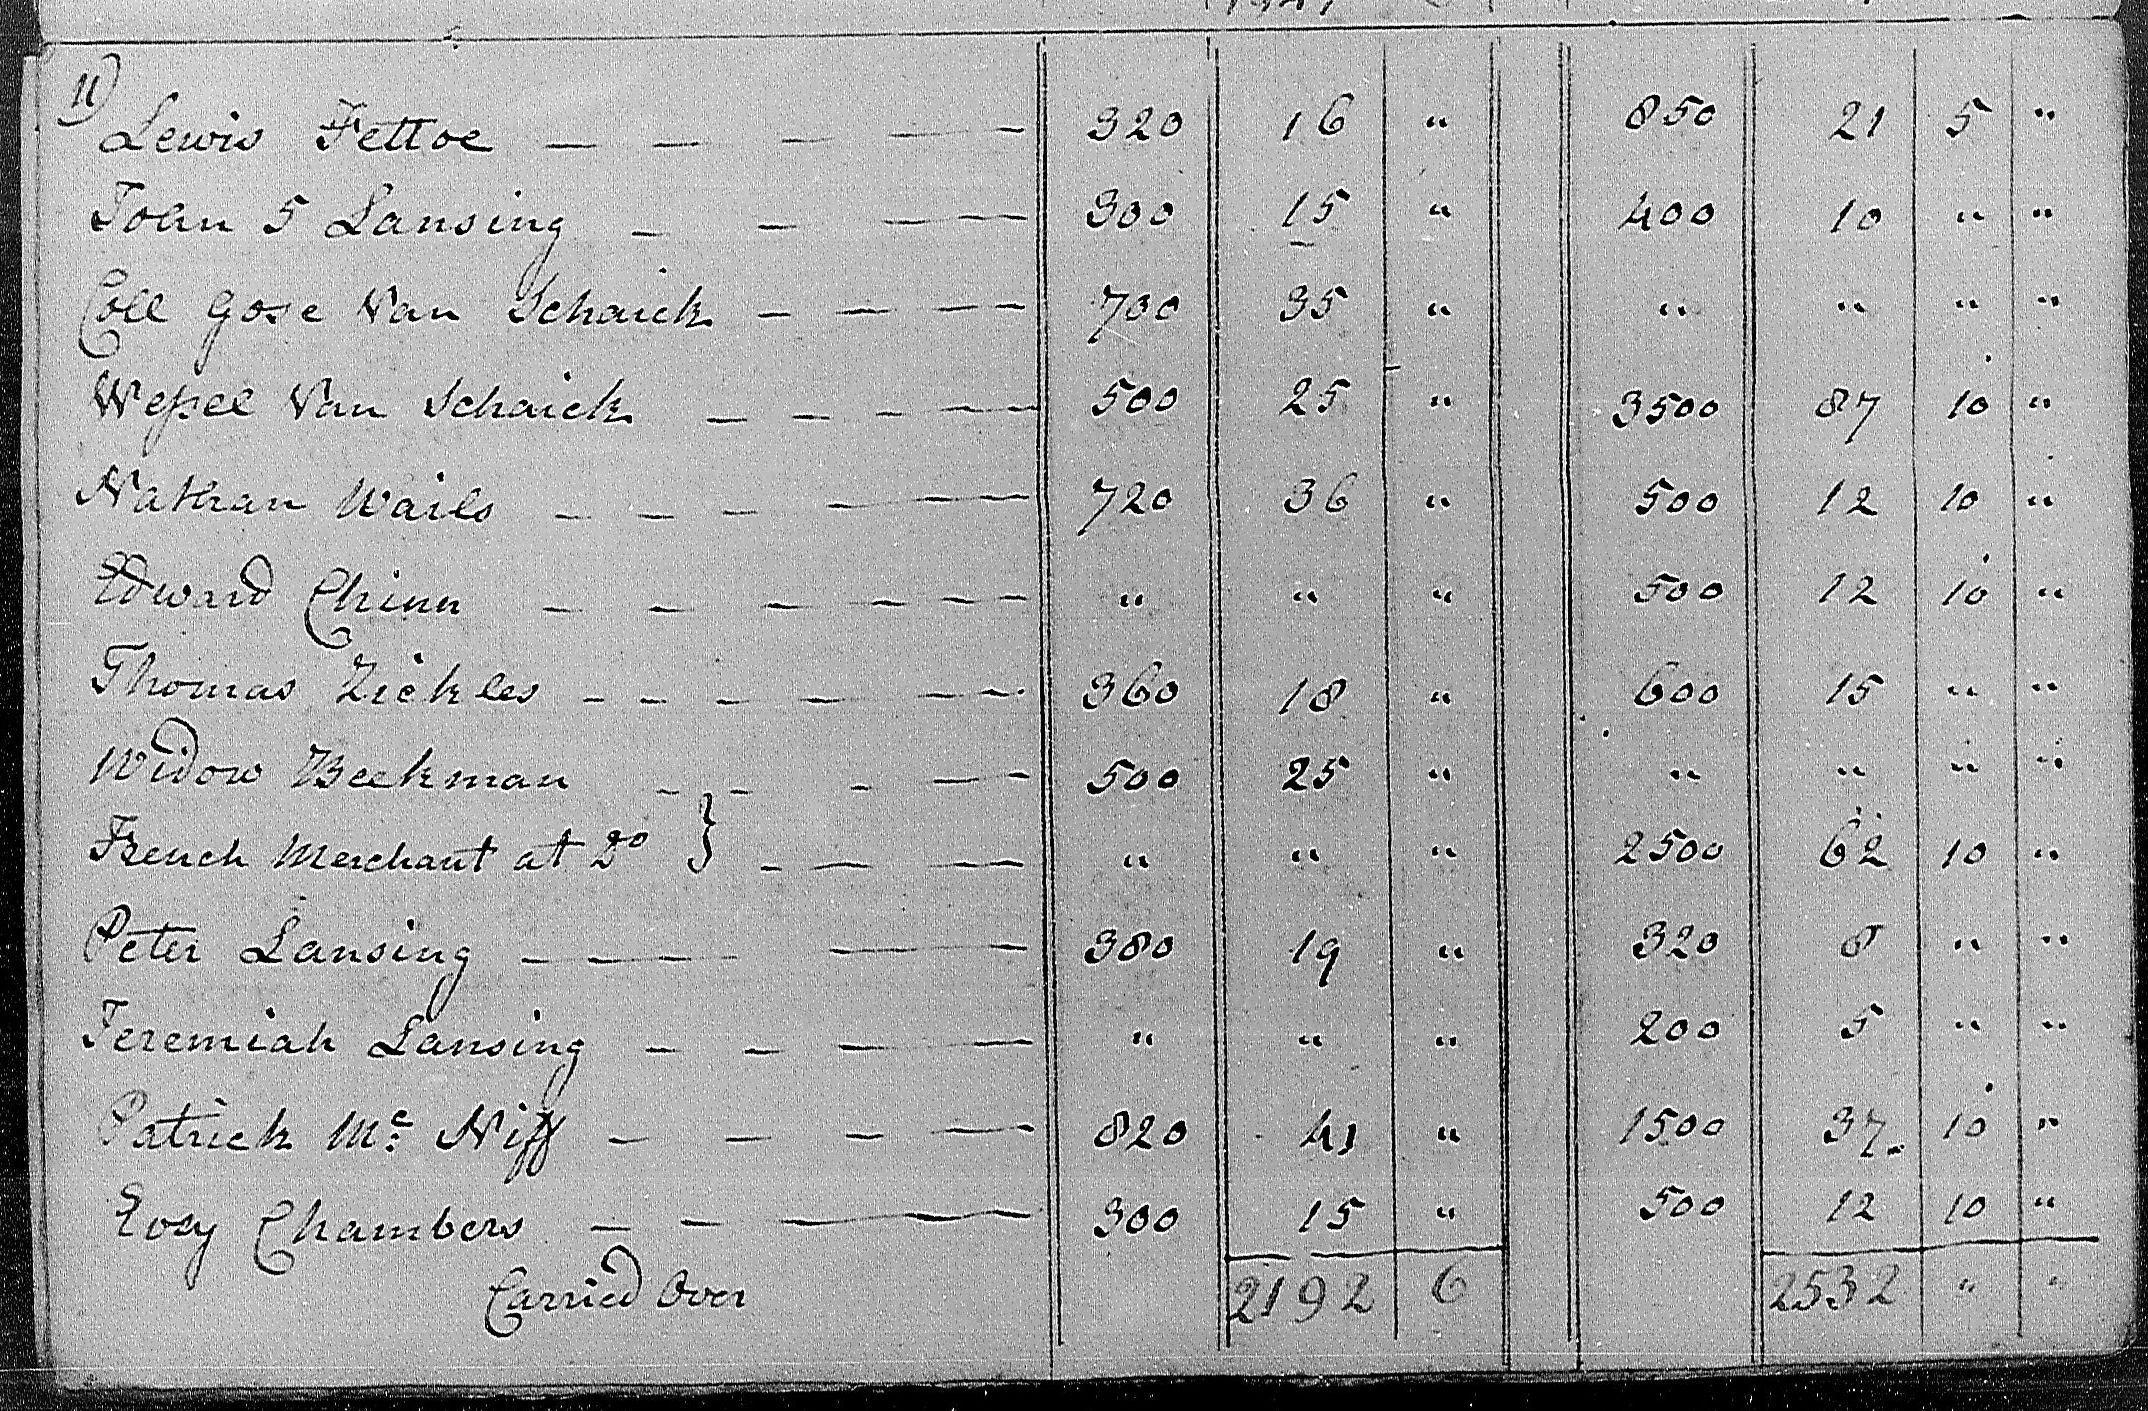 11)
Lewis Fettoe — — — — — 320 16 " 850 21 5 "
John S Lansing — — — — 300 15 " 400 10 " "
Coll Gose Van Schaick — — — — 700 35 " " " " "
Wessel Van Schaick — — — — 500 25 " 3500 87 10 "
Nathan Wails — — — — — 720 36 " 500 12 10 "
Edward Chinn — — — — — — " " " 500 12 10 "
Thomas Zickles — — — — — 360 18 " 600 15 " "
Widow Beekman — — — — 500 25 " " " " "
French Merchant at Do } — — — " " " 2500 62 10 "
Peter Lansing — — — — — 380 19 " 320 8 " "
Jeremiah Lansing — — — — " " " 200 5 " "
Patrick Mc Niff — — — — 820 41 " 1500 37 10 "
Evey Chambers — — — — 300 15 " 500 12 10 "
Carried Over 2192 6 2532 " "